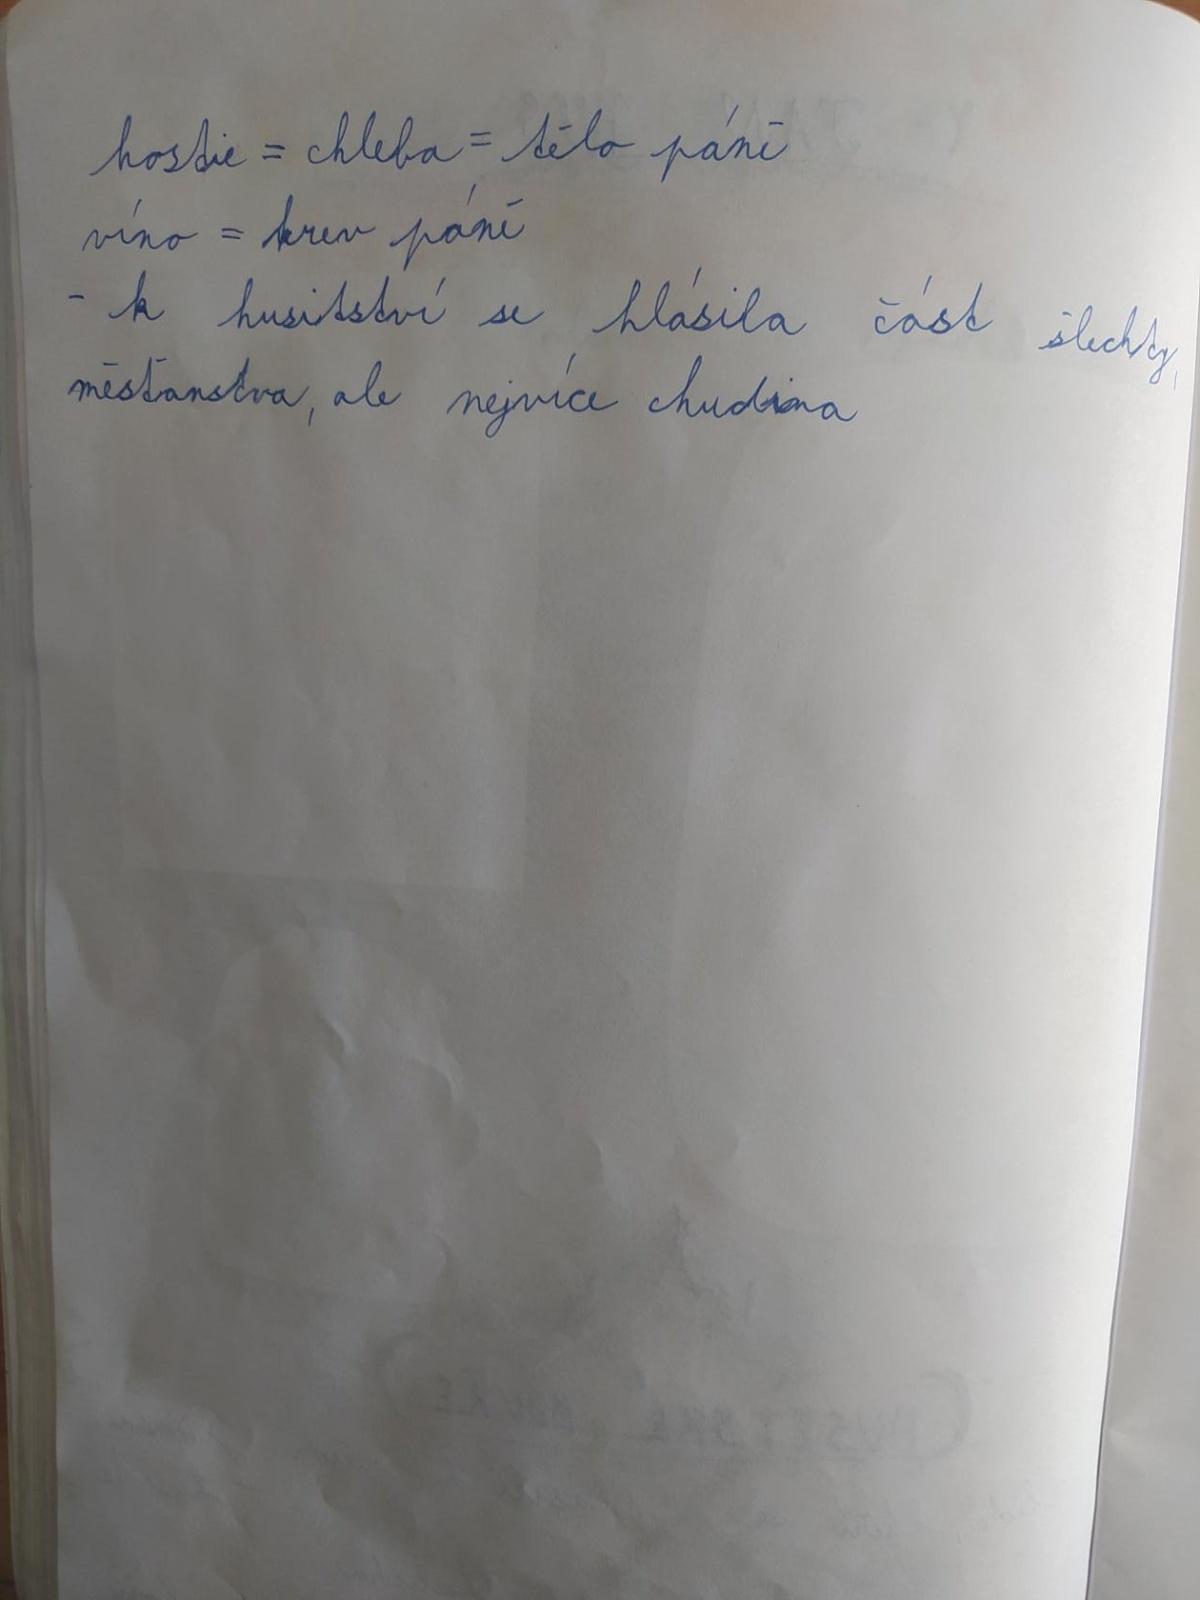 hostie = chleba = tělo páně
víno = krev páně
- k husitství se hlásila část šlechty,
měšťanstva, ale nejvíce chudina